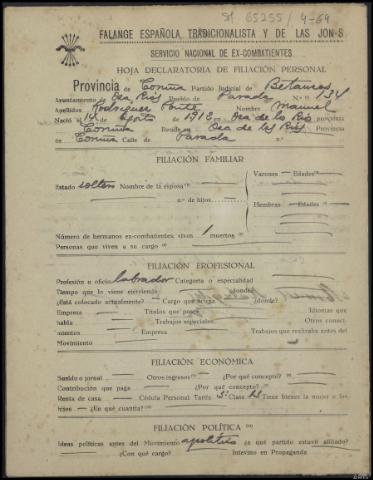 65255 / 4-69
FALANGE ESPAÑOLA, TRADICIONALISTA Y DE LAS JON-S
SERVICIO NACIONAL DE EX-COMBATIENTES
HOJA DECLARATORIA DE FILIACIÓN PERSONAL
Provincia de Coruña Partido Judicial de Betanzos
Ayuntamiento de Oza Ríos Pueblo de Parada N.º 134
Apellidos Rodríguez Nombre Manuel
Nació 14 de Agosto de 1912 en Oza de los Ríos provincia
Coruña Reside en Oza de los Ríos Provincia
de Coruña Calle de Parada
FILIACIÓN FAMILIAR
Estado soltero Nombre de la esposa — Varones — Edades —
n.º de hijos — Hembras — Edades —
Número de hermanos ex-combatientes, vivos 1 muertos —
Personas que viven a su cargo —
FILIACIÓN PROFESIONAL
Profesión u oficio labrador Categoría o especialidad —
Tiempo que lo viene ejerciendo —
¿Está colocado actualmente? — Cargo que ocupa — ¿dónde?
Empresa — Títulos que posee — Idiomas que
habla — Trabajos especiales — Otros conoci-
mientos — Empresa — Trabajos que realizaba antes del
Movimiento —
FILIACIÓN ECONÓMICA
Sueldo o jornal — Otros ingresos — ¿Por qué concepto? —
Contribución que paga — ¿Por qué concepto? —
Renta de casa — Cédula Personal Tarifa 3ª Clase 13 Tiene bienes la mujer o los
hijos — ¿En qué cuantía? —
FILIACIÓN POLÍTICA
Ideas políticas antes del Movimiento apolítico ¿a qué partido estuvo afiliado?
¿Con qué cargo? — Intervino en Propaganda